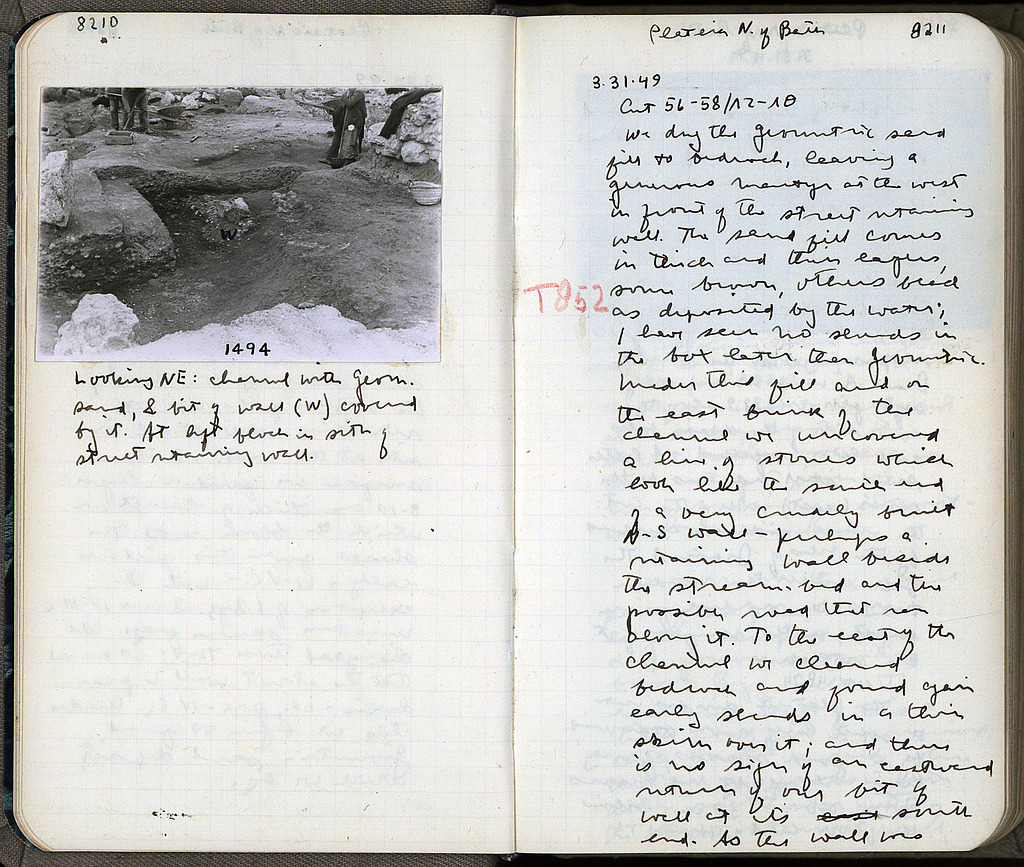 8210
W
1494
Looking NE: channel with Geom.
sand, & bit of wall (W) covered
by it. At left block in situ of
street retaining wall.
Plateia N. of Bath
8211
3.31.49
Cut 56-58/12-18
We dug the Geometric sand
fill to bedrock, leaving a
generous martyr at the west
in front of the street retaining
wall. The sand fill comes
in thick and thin layers,
some brown, others
as deposited by the water;
T852
I have seen no sherds in
the box later than Geometric.
Under this fill and on
the east brink of the
channel we uncovered
a line of stones which
look like the south end
of a very crudely built
N-S wall - perhaps a
retaining wall beside
the stream-bed and the
possible road that ran
along it. To the east of the
channel we cleared
bedrock and found again
early sherds in a thin
skim over it; and there
is no sign of an eastward
return of our bit of
wall at its east south
end. As the wall was